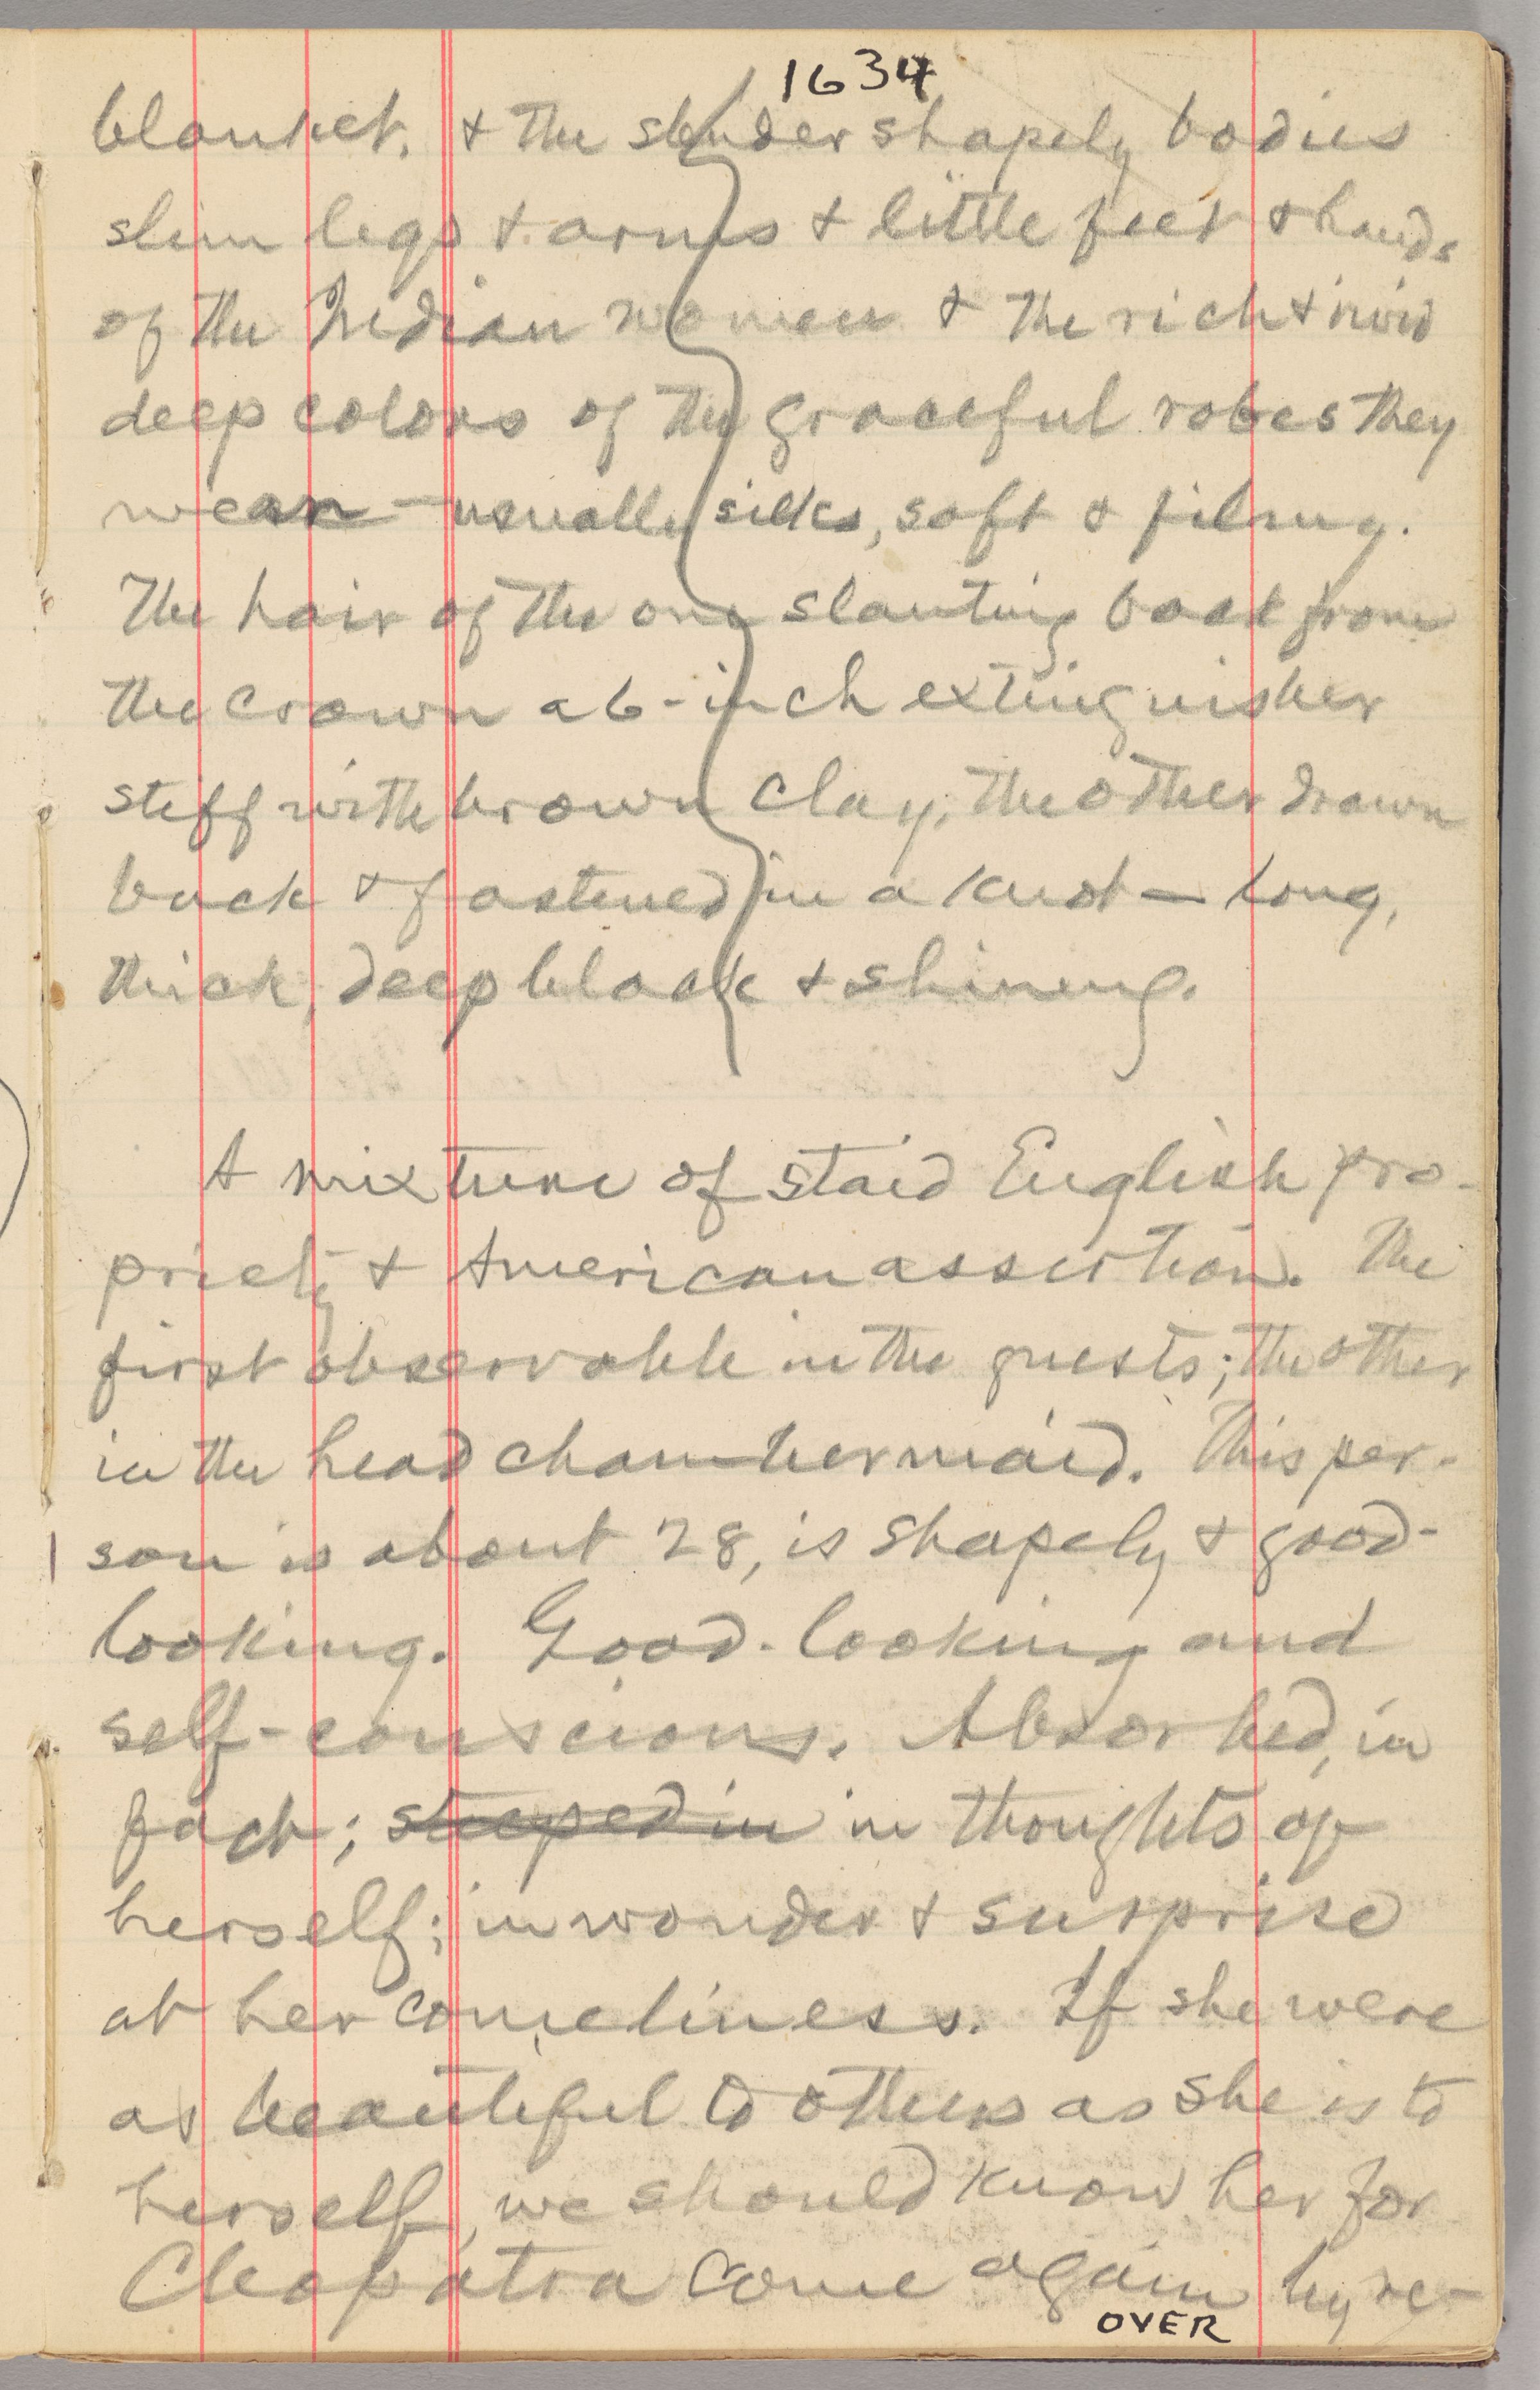 1634
blanket. & the slender shapely bodies
slim legs & arms & little feet & hands
of the Indian women & the rich & vivid
deep colors of the graceful robes they
wear — usually silks, soft & filmy.
The hair of the one slanting back from
the crown a 6-inch extinguisher
stiff with brown clay, the other drawn
back & fastened in a knot — long,
thick, deep black & shining.
A mixture of staid English pro-
priety & American assertion. The
first observable in the guests; the other
in the head chambermaid. This per-
son is about 28, is shapely & good-
looking. Good-looking and
self-conscious. Absorbed, in
fact; steeped in in thoughts of
herself; in wonder & surprise
at her comeliness. If she were
as beautiful to others as she is to
herself, we should know her for
Cleopatra come again by re-
OVER